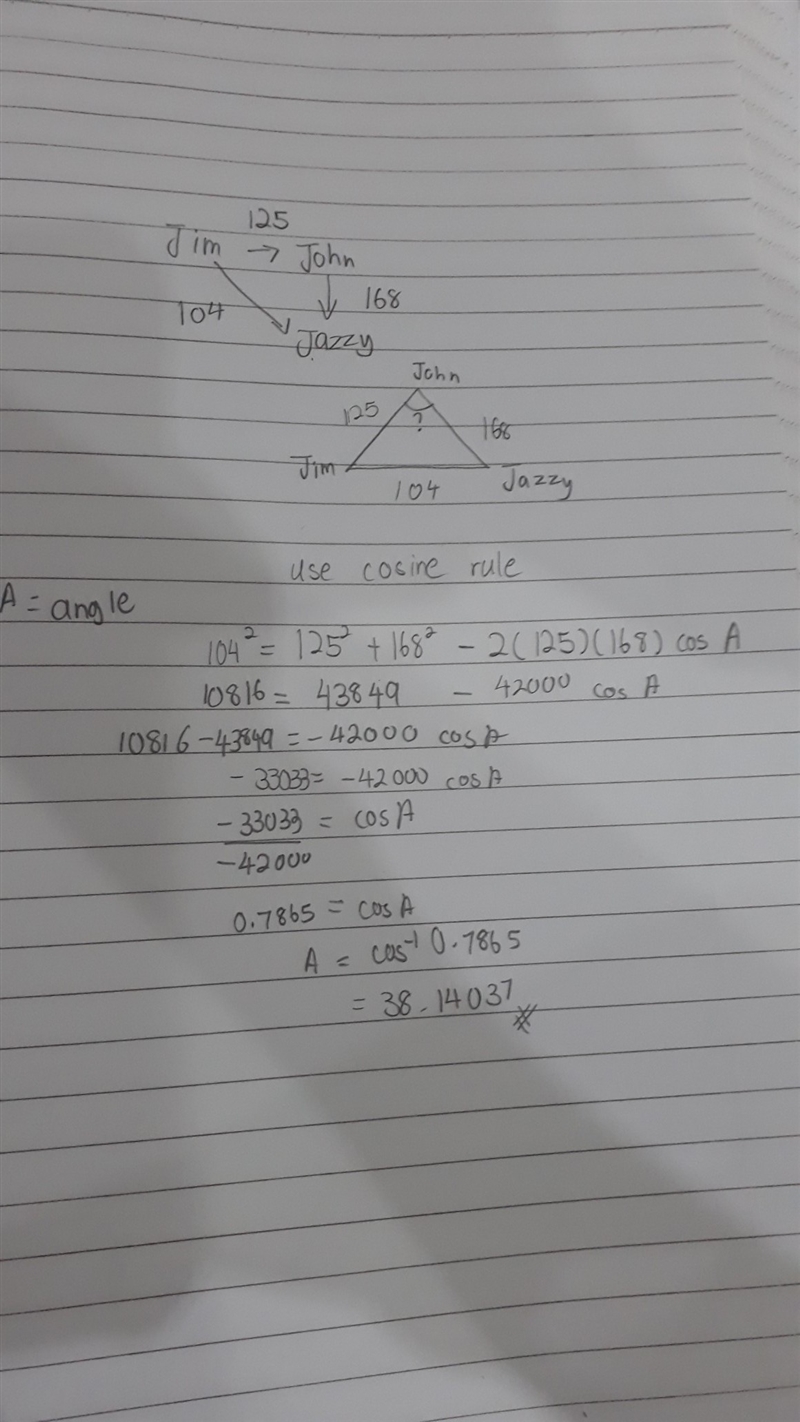 125
Jim → John
104
168
Jazzy
John
125
?
168
Jim
Jazzy
104
use cosine rule
A = angle
104² = 125² + 168² - 2(125)(168) cos A
10816 = 43849 - 42000 cos A
10816 - 43849 = - 42000 cos A
- 33033 = - 42000 cos A
- 33033 = cos A
- 42000
0.7865 = cos A
A = cos⁻¹ 0.7865
= 38.14037